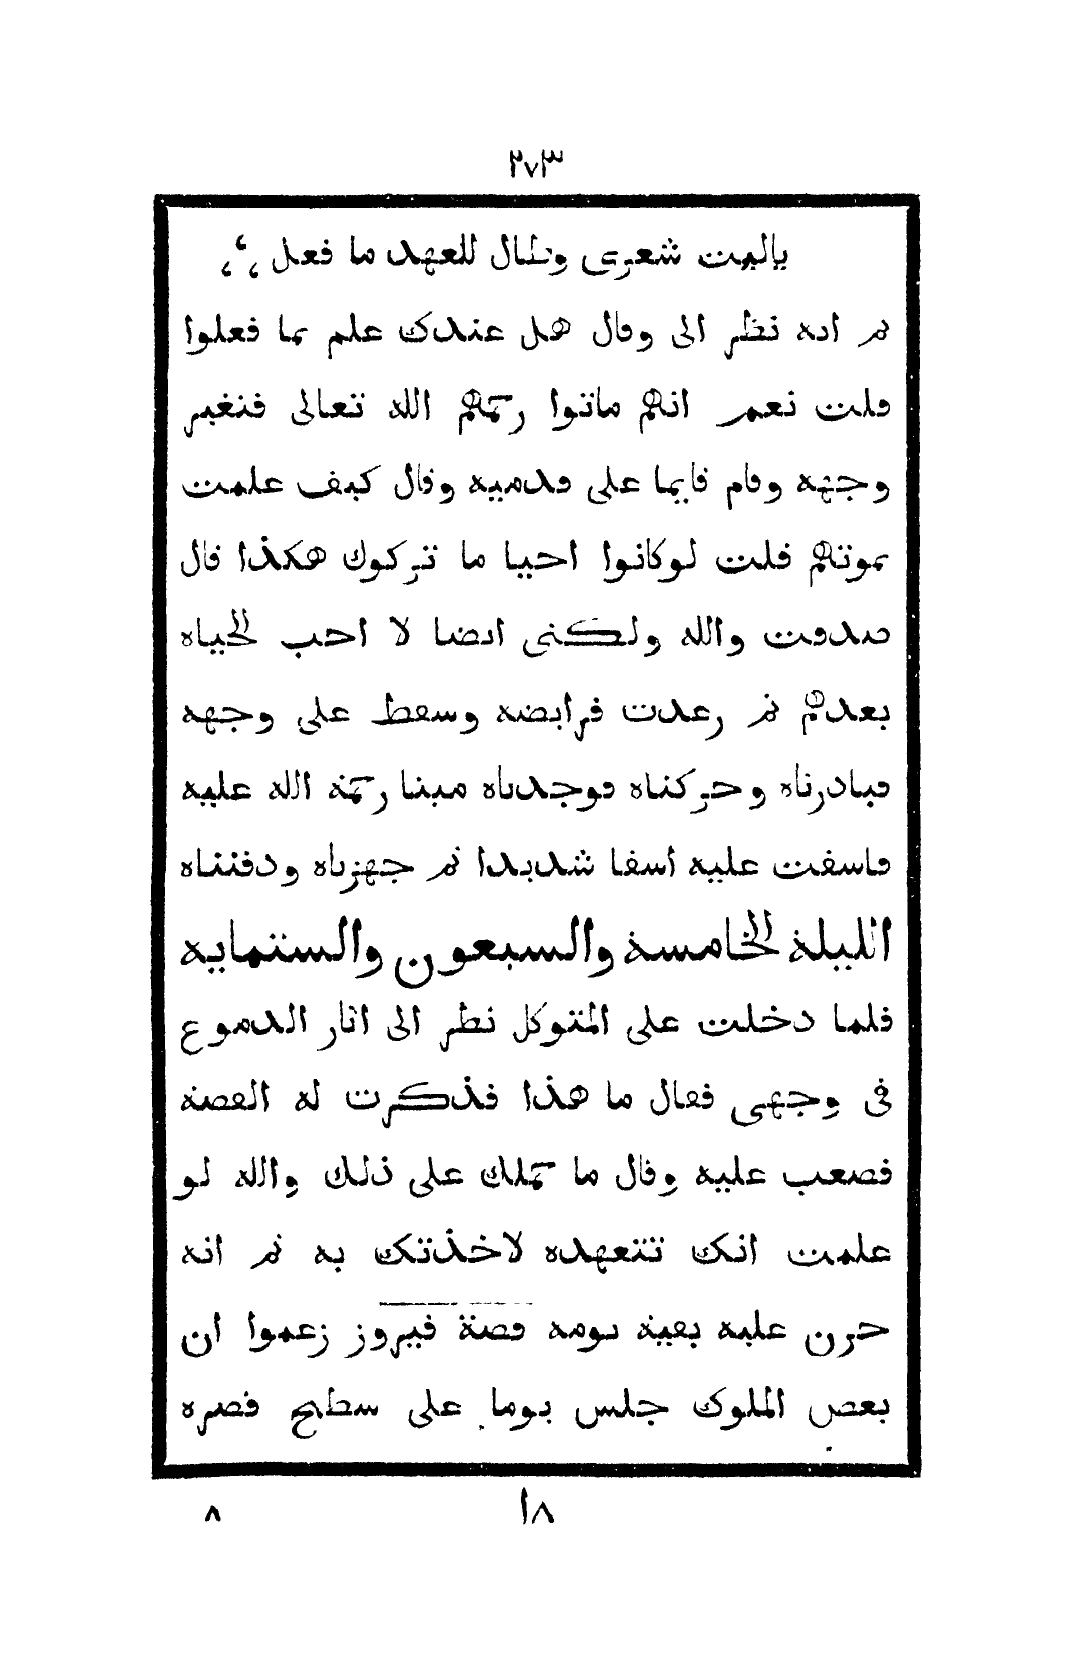 ٢٧٣
ياليت شعرى وطال للعهد ما فعل
ثم انه نظر الى وقال هل عندك علم بما فعلوا
قلت نعم انهم ماتوا رحمهم الله تعالى فتغير
وجهه وقام قايما على قدميه وقال كيف علمت
بموتهم قلت لوكانوا احيا ما تركوك هكذا قال
صدقت والله ولكنى ايضا لا احب الحياه
بعدهم ثم رعدت فرايضه وسقط على وجهه
فبادرناه وحركناه فوجدناه ميتا رحمة الله عليه
فاسفت عليه اسفا شديدا ثم جهزناه ودفنناه
الليلة الخامسة والسبعون والستمايه
فلما دخلت على المتوكل نظر الى اثار الدموع
فى وجهى فقال ما هذا فذكرت له القصة
فصعب عليه وقال ما حملك على ذلك والله لو
علمت انك تتعهده لاخذتك به ثم انه
حزن عليه بقية يومه قصة فيروز زعموا ان
بعض الملوك جلس يوما على سطح قصره
١٨
٨